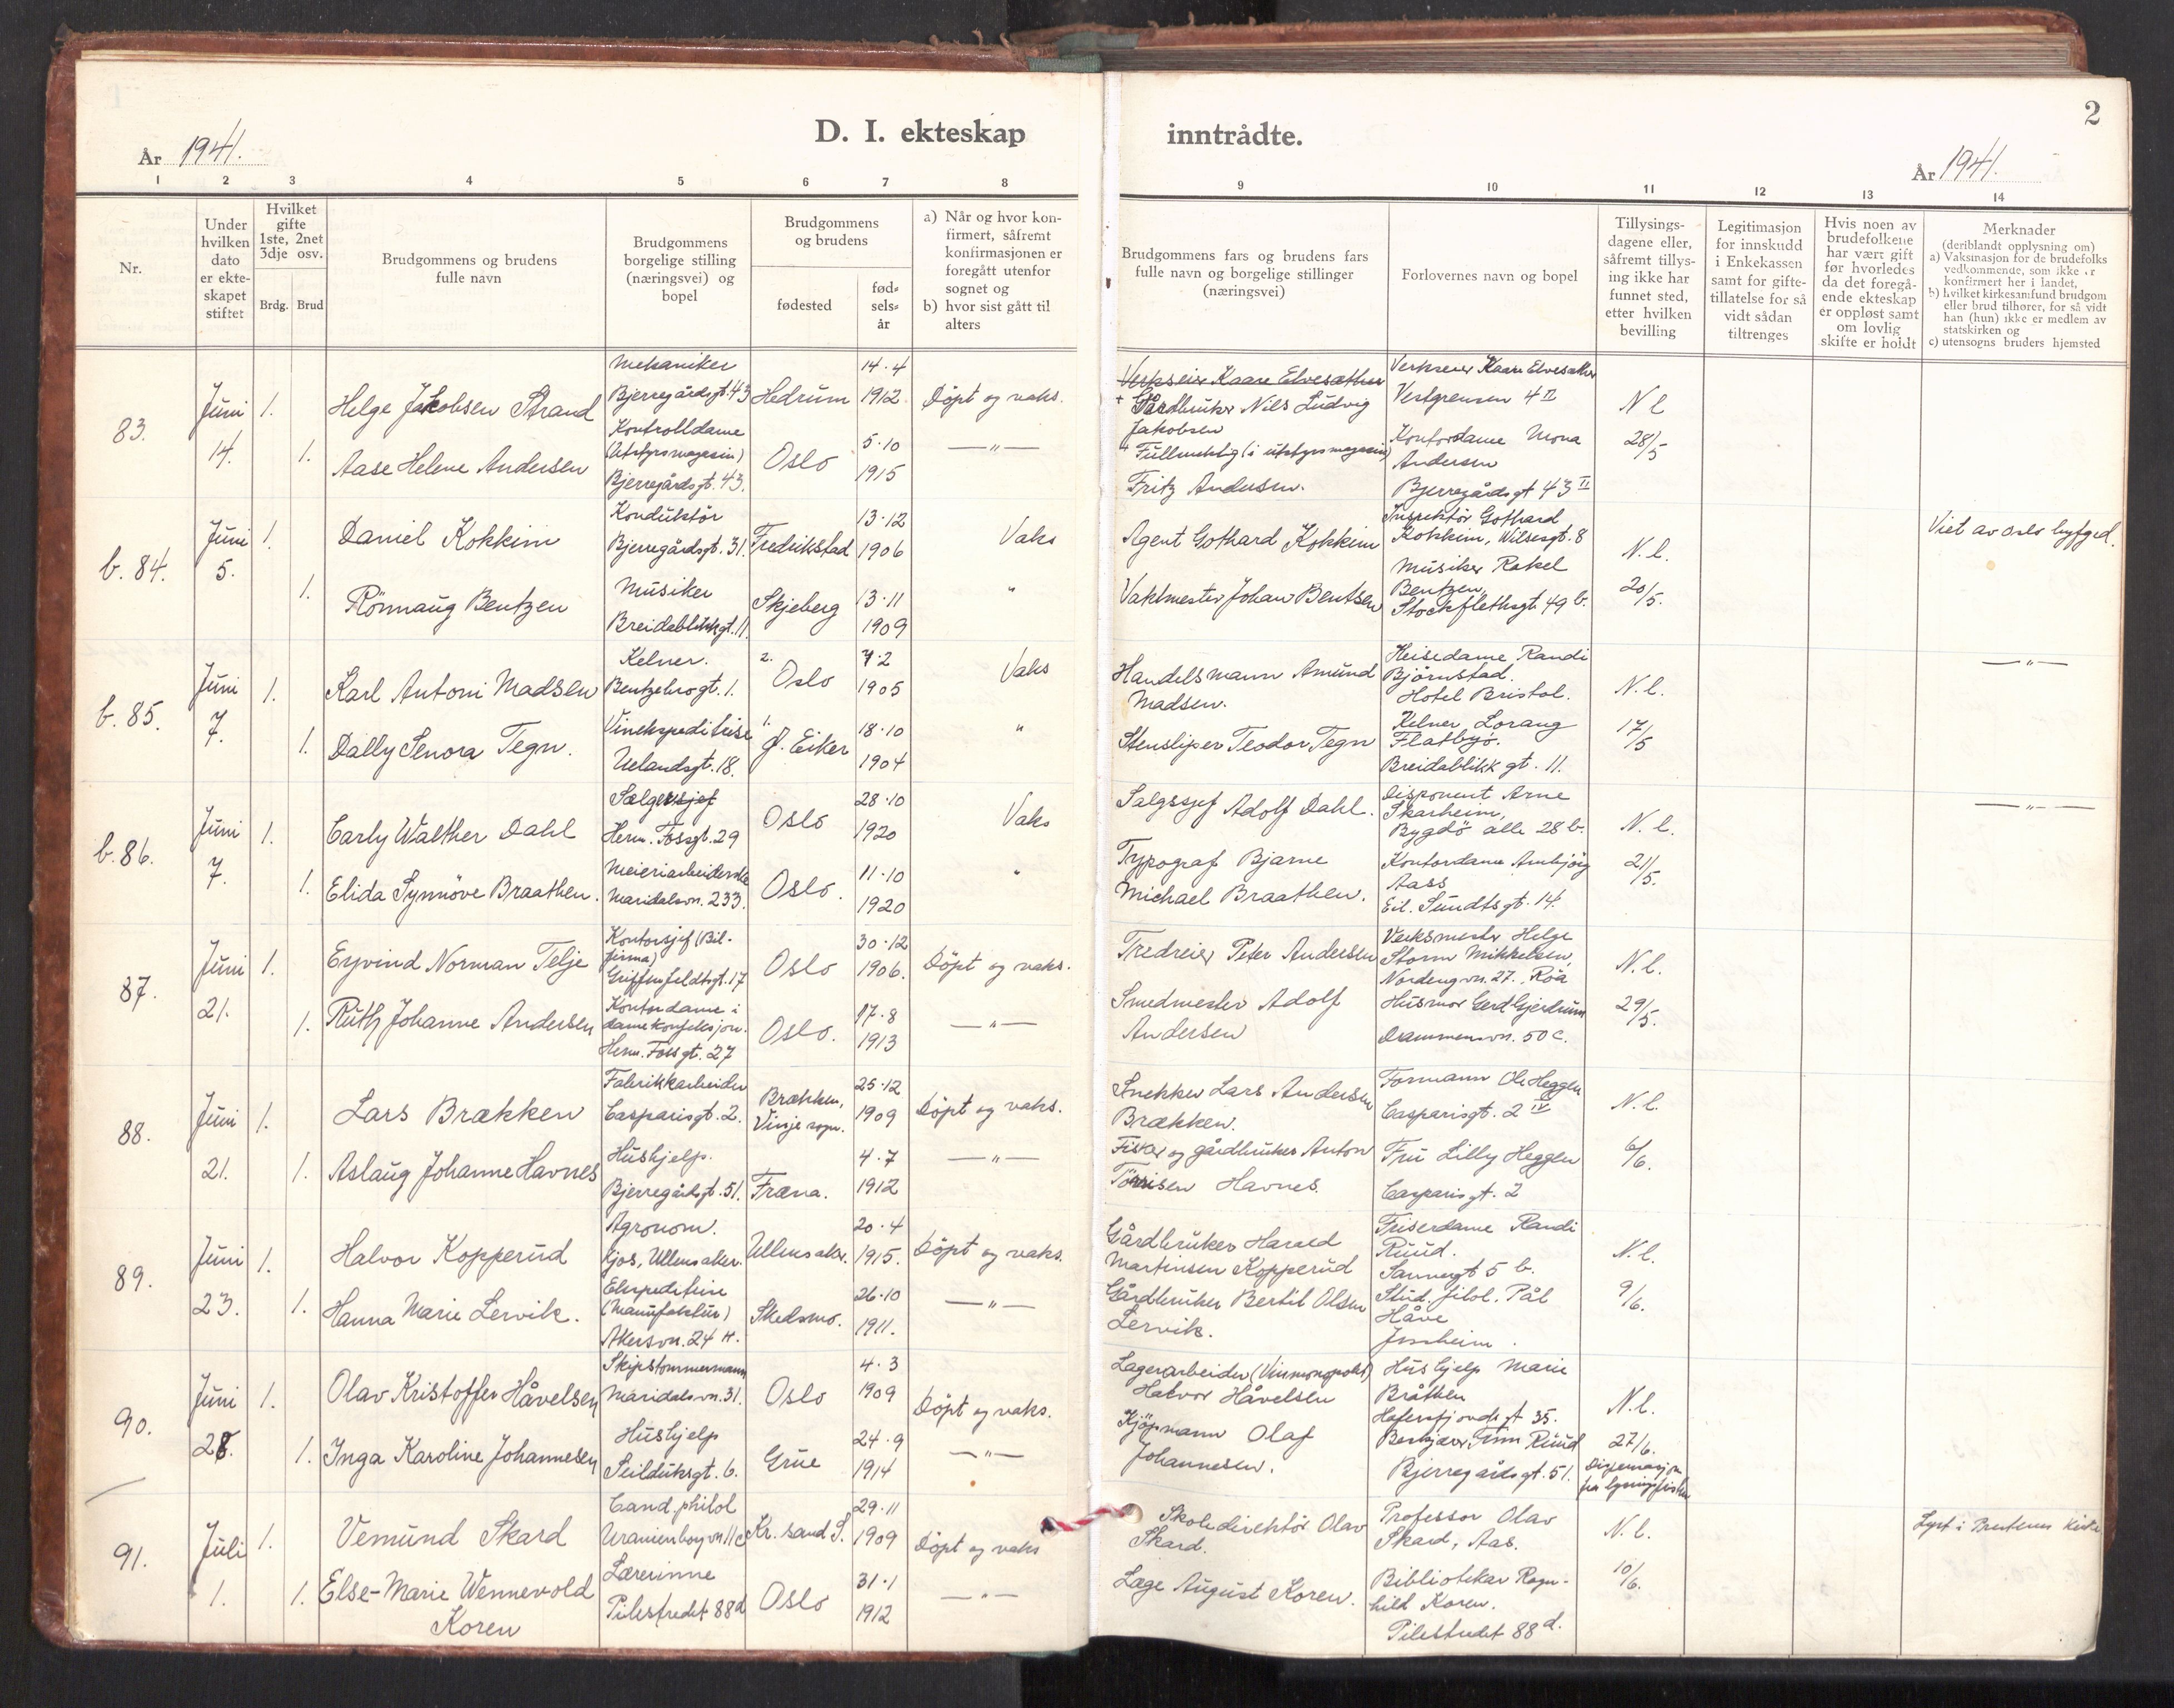 2
D. I. ekteskap inntrådte.
År 1941.
År 1941.
1 2 3 4 5 6 7 8 9 10 11 12 13 14
Nr.
Under hvilken dato er ekteskapet stiftet
Hvilket gifte 1ste, 2net 3dje osv.
Brdg. Brud
Brudgommens og brudens fulle navn
Brudgommens borgelige stilling (næringsvei) og bopel
Brudgommens og brudens
fødested
fødselsår
a) Når og hvor konfirmert, såfremt konfirmasjonen er foregått utenfor sognet og
b) hvor sist gått til alters
Brudgommens fars og brudens fars fulle navn og borgelige stillinger (næringsvei)
Forlovernes navn og bopel
Tillysingsdagene eller, såfremt tillysing ikke har funnet sted, etter hvilken bevilling
Legitimasjon for innskudd i Enkekassen samt for giftetillatelse for så vidt sådan tiltrenges
Hvis noen av brudefolkene har vært gift før hvorledes da det foregående ekteskap er oppløst samt om lovlig skifte er holdt
Merknader
(deriblandt opplysning om)
a) Vaksinasjon for de brudefolks vedkommende, som ikke er konfirmert her i landet,
b) hvilket kirkesamfund brudgom eller brud tilhører, for så vidt han (hun) ikke er medlem av statskirken og
c) utensogns bruders hjemsted
83.
Juni 14.
1.
Helge Jakobsen Strand
Mekaniker
Bjerregårdsgt. 43
Hedrum
14.4 1912
Döpt og vaks.
Verkseier Kaare Elvesæther
+ Gårdbruker Nils Ludvig Jakobsen
Verkseier Kaare Elvesæther
Vestgrensen 4 II
N l
28/5
1.
Aase Helene Andersen
Kontrolldame
(Utstyrsmagasin)
Bjerregårdsgt. 43.
Oslo
5.10 1915
— " —
+ Fullmektig (i utstyrsmagasin)
Fritz Andersen.
Kontordame Mona
Andersen
Bjerregårdsgt 43 II
b. 84.
Juni 5.
1.
Daniel Kokkim
Konduktör
Bjerregårdsgt. 31.
Fredrikstad
13.12 1906
Vaks
Agent Gothard Kokkim
Inspektör Gothard
Kokkim, Wilsesgt. 8
N. l.
20/5.
Viet av Oslo byfgd.
1.
Rönnaug Bentzen
Musiker
Breidablikkgt. 11.
Skjeberg
13.11 1909
"
Vaktmester Johan Bentsen
Musiker Rakel
Bentzen,
Stockflethsgt. 49 b.
b. 85.
Juni 7.
1.
Karl Antoni Madsen
Kelner.
Bentzebrogt. 1.
2.
Oslo
7.2 1905
Vaks
Handelsmann Amund
Madsen.
Heisedame Randi
Björnstad.
Hotel Bristol.
N. l.
17/5
— " —
1.
Dally Senora Tegn.
Vinekspeditrise
Uelandsgt. 18.
1.
Ø. Eiker
18.10 1904
"
Stensliper Teodor Tegn
Kelner, Lorang
Flatbyø.
Breidablikk gt. 11.
b. 86.
Juni 7.
1.
Carly Walther Dahl
Sælgersjef
Herm. Fossgt. 29
Oslo
28.10 1920
Vaks
Salgssjef Adolf Dahl.
Disponent Arne
Skarheim,
Bygdö alle 28 b.
N. l.
21/5.
— " —
1.
Elida Synnöve Braathen.
Meieriarbeiderske
Maridalsvn. 233.
Oslo.
11.10 1920
"
Typograf Bjarne
Michael Braathen.
Kontordame Annbjörg
Aass
Eil. Sundtsgt. 14.
87.
Juni 21.
1.
Eyvind Norman Telje
Kontorsjef (Bil-
firma)
Griffenfeldtsgt. 17
Oslo
30.12 1906.
Döpt og vaks.
Tredreier Peter Andersen
Verksmester Helge
Storm Mikkelsen,
Nordengvn. 27. Röa
N. l.
29/5.
1.
Ruth Johanne Andersen
Kontordame i
damekonfeksjon.
Herm. Fossgt. 27
Oslo.
17.8 1913
— " —
Smedmester Adolf
Andersen
Husmor Gerd Gjerdrum
Drammensvn. 50 C.
88.
Juni 21.
1.
Lars Brækken
Fabrikkarbeider
Casparisgt. 2.
Brækken,
Vinje sogn.
25.12 1909
Döpt og vaks.
Snekker Lars Andersen
Brækken.
Formann Ole Heggen
Casparisgt. 2 IV
N. l.
6/6.
1.
Aslaug Johanne Havnes
Hushjelp.
Bjerregårdsgt. 51.
Fræna.
4.7 1912
— " —
Fisker og gårdbruker Anton
Törrisen Havnes.
Fru Lilly Heggen
Casparisgt. 2
89.
Juni 23.
1.
Halvor Kopperud
Agronom.
Gjos, Ullensaker.
Ullensaker.
20.4 1915.
Döpt og vaks.
Gårdbruker Harald
Martinsen Kopperud
Friserdame Randi
Ruud.
Sannergt 5 b.
N. l.
9/6.
1.
Hanna Marie Lervik.
Ekspeditrise
(Manufaktur)
Akersvn. 24 H.
Skedsmo.
26.10 1911.
— " —
Gårdbruker Bertil Olsen
Lervik.
Stud. filol. Pål
Håve
Jessheim.
90.
Juni 28.
1.
Olav Kristoffer Håvelsen
Skipstømmermann
Maridalsvn. 31.
Oslo
4.3 1909
Döpt og vaks.
Lagerarbeider (Vinmonopolet)
Halvor Håvelsen
Hushjelp Marie
Bråthen
Hafrsfjordsgt 35.
N. l.
27/6.
1.
Inga Karoline Johannesen
Hushjelp
Seilduksgt. 6.
Grue
24.9 1914
— " —
Kjöpmann Olaf
Johannesen.
Finn Ruud
Bjerregårdsgt. 51.
91.
Juli 1.
1.
Vemund Skard
Cand. philol
Uranienborgvn 11 c
Kr. sand S.
29.11 1909
Döpt og vaks
Skoledirektör Olav
Skard.
Professor Olav
Skard, Aas.
N. l.
10/6.
Lyst i Prestenes kirke
1.
Else-Marie Wennevold
Koren
Lærerinne
Pilestredet 88d
Oslo
31.1 1912
— " —
Læge August Koren.
Bibliotekar Ragn-
hild Koren.
Pilestredet 88 d.